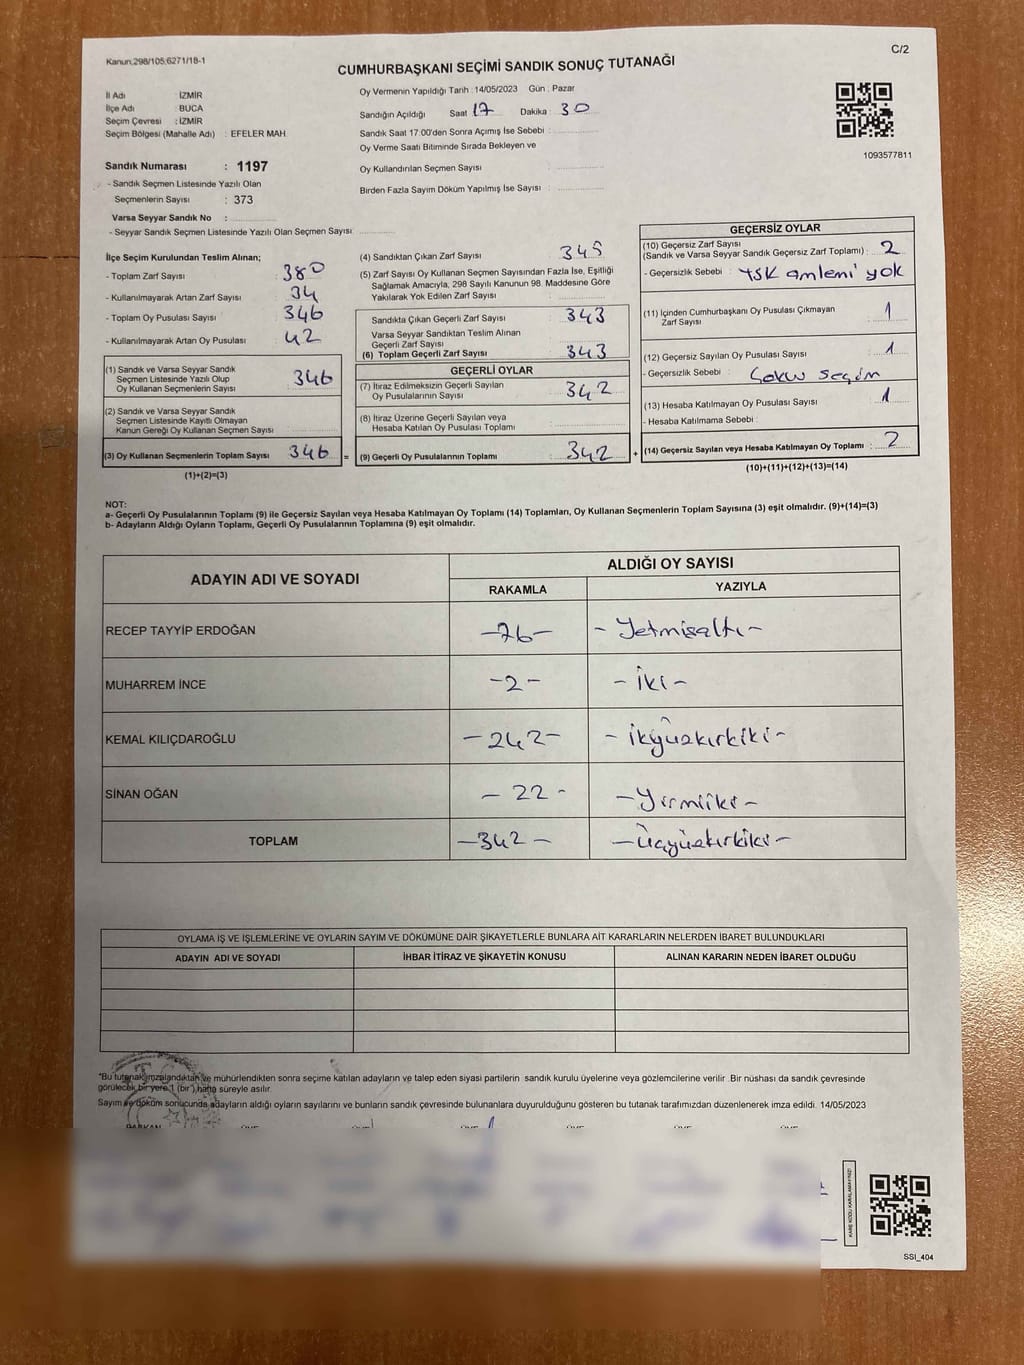 Kanun.298/105;6271/18-1
C/2
CUMHURBAŞKANI SEÇİMİ SANDIK SONUÇ TUTANAĞI
İl Adı : İZMİR
İlçe Adı : BUCA
Seçim Çevresi : İZMİR
Seçim Bölgesi (Mahalle Adı) : EFELER MAH
Sandık Numarası : 1197
- Sandık Seçmen Listesinde Yazılı Olan
Seçmenlerin Sayısı : 373
Varsa Seyyar Sandık No :
- Seyyar Sandık Seçmen Listesinde Yazılı Olan Seçmen Sayısı:
Oy Vermenin Yapıldığı Tarih : 14/05/2023 Gün : Pazar
Sandığın Açıldığı Saat 17 Dakika : 30
Sandık Saat 17:00'den Sonra Açımış İse Sebebi :
Oy Verme Saati Bitiminde Sırada Bekleyen ve
Oy Kullandırılan Seçmen Sayısı :
Birden Fazla Sayım Döküm Yapılmış İse Sayısı :
1093577811
İlçe Seçim Kurulundan Teslim Alınan;
- Toplam Zarf Sayısı : 380
- Kullanılmayarak Artan Zarf Sayısı : 34
- Toplam Oy Pusulası Sayısı : 346
- Kullanılmayarak Artan Oy Pusulası : 42
(1) Sandık ve Varsa Seyyar Sandık
Seçmen Listesinde Yazılı Olup
Oy Kullanan Seçmenlerin Sayısı : 346
(2) Sandık ve Varsa Seyyar Sandık
Seçmen Listesinde Kayıtlı Olmayan
Kanun Gereği Oy Kullanan Seçmen Sayısı :
(3) Oy Kullanan Seçmenlerin Toplam Sayısı : 346 =
(1)+(2)=(3)
(4) Sandıktan Çıkan Zarf Sayısı : 345
(5) Zarf Sayısı Oy Kullanan Seçmen Sayısından Fazla İse, Eşitliği
Sağlamak Amacıyla, 298 Sayılı Kanunun 98. Maddesine Göre
Yakılarak Yok Edilen Zarf Sayısı :
Sandıkta Çıkan Geçerli Zarf Sayısı : 343
Varsa Seyyar Sandıktan Teslim Alınan
Geçerli Zarf Sayısı :
(6) Toplam Geçerli Zarf Sayısı : 343
GEÇERLİ OYLAR
(7) İtiraz Edilmeksizin Geçerli Sayılan
Oy Pusulalarının Sayısı : 342
(8) İtiraz Üzerine Geçerli Sayılan veya
Hesaba Katılan Oy Pusulası Toplamı :
(9) Geçerli Oy Pusulalarının Toplamı : 342 +
GEÇERSİZ OYLAR
(10) Geçersiz Zarf Sayısı
(Sandık ve Varsa Seyyar Sandık Geçersiz Zarf Toplamı) : 2
- Geçersizlik Sebebi : YSK amlemi yok
(11) İçinden Cumhurbaşkanı Oy Pusulası Çıkmayan
Zarf Sayısı : 1
(12) Geçersiz Sayılan Oy Pusulası Sayısı : 1
- Geçersizlik Sebebi : Çoklu seçim
(13) Hesaba Katılmayan Oy Pusulası Sayısı : 1
- Hesaba Katılmama Sebebi :
(14) Geçersiz Sayılan veya Hesaba Katılmayan Oy Toplamı : 2
(10)+(11)+(12)+(13)=(14)
NOT:
a- Geçerli Oy Pusulalarının Toplamı (9) ile Geçersiz Sayılan veya Hesaba Katılmayan Oy Toplamı (14) Toplamları, Oy Kullanan Seçmenlerin Toplam Sayısına (3) eşit olmalıdır. (9)+(14)=(3)
b- Adayların Aldığı Oyların Toplamı, Geçerli Oy Pusulalarının Toplamına (9) eşit olmalıdır.
ADAYIN ADI VE SOYADI
ALDIĞI OY SAYISI
RAKAMLA YAZIYLA
RECEP TAYYİP ERDOĞAN -76- - Yetmişaltı -
MUHARREM İNCE -2- - İki -
KEMAL KILIÇDAROĞLU -242- - ikiyüzkırkiki -
SİNAN OĞAN - 22 - - Yirmiiki -
TOPLAM -342- - Üçyüzkırkiki -
OYLAMA İŞ VE İŞLEMLERİNE VE OYLARIN SAYIM VE DÖKÜMÜNE DAİR ŞİKAYETLERLE BUNLARA AİT KARARLARIN NELERDEN İBARET BULUNDUKLARI
ADAYIN ADI VE SOYADI İHBAR İTİRAZ VE ŞİKAYETİN KONUSU ALINAN KARARIN NEDEN İBARET OLDUĞU
*Bu tutanak imzalandıktan ve mühürlendikten sonra seçime katılan adayların ve talep eden siyasi partilerin sandık kurulu üyelerine veya gözlemcilerine verilir .Bir nüshası da sandık çevresinde
görülecek bir yere 1 (bir ) hafta süreyle asılır.
Sayım ve döküm sonucunda adayların aldığı oyların sayılarını ve bunların sandık çevresinde bulunanlara duyurulduğunu gösteren bu tutanak tarafımızdan düzenlenerek imza edildi. 14/05/2023
KARE KODU KARALAMAYINIZ!
SSI_404